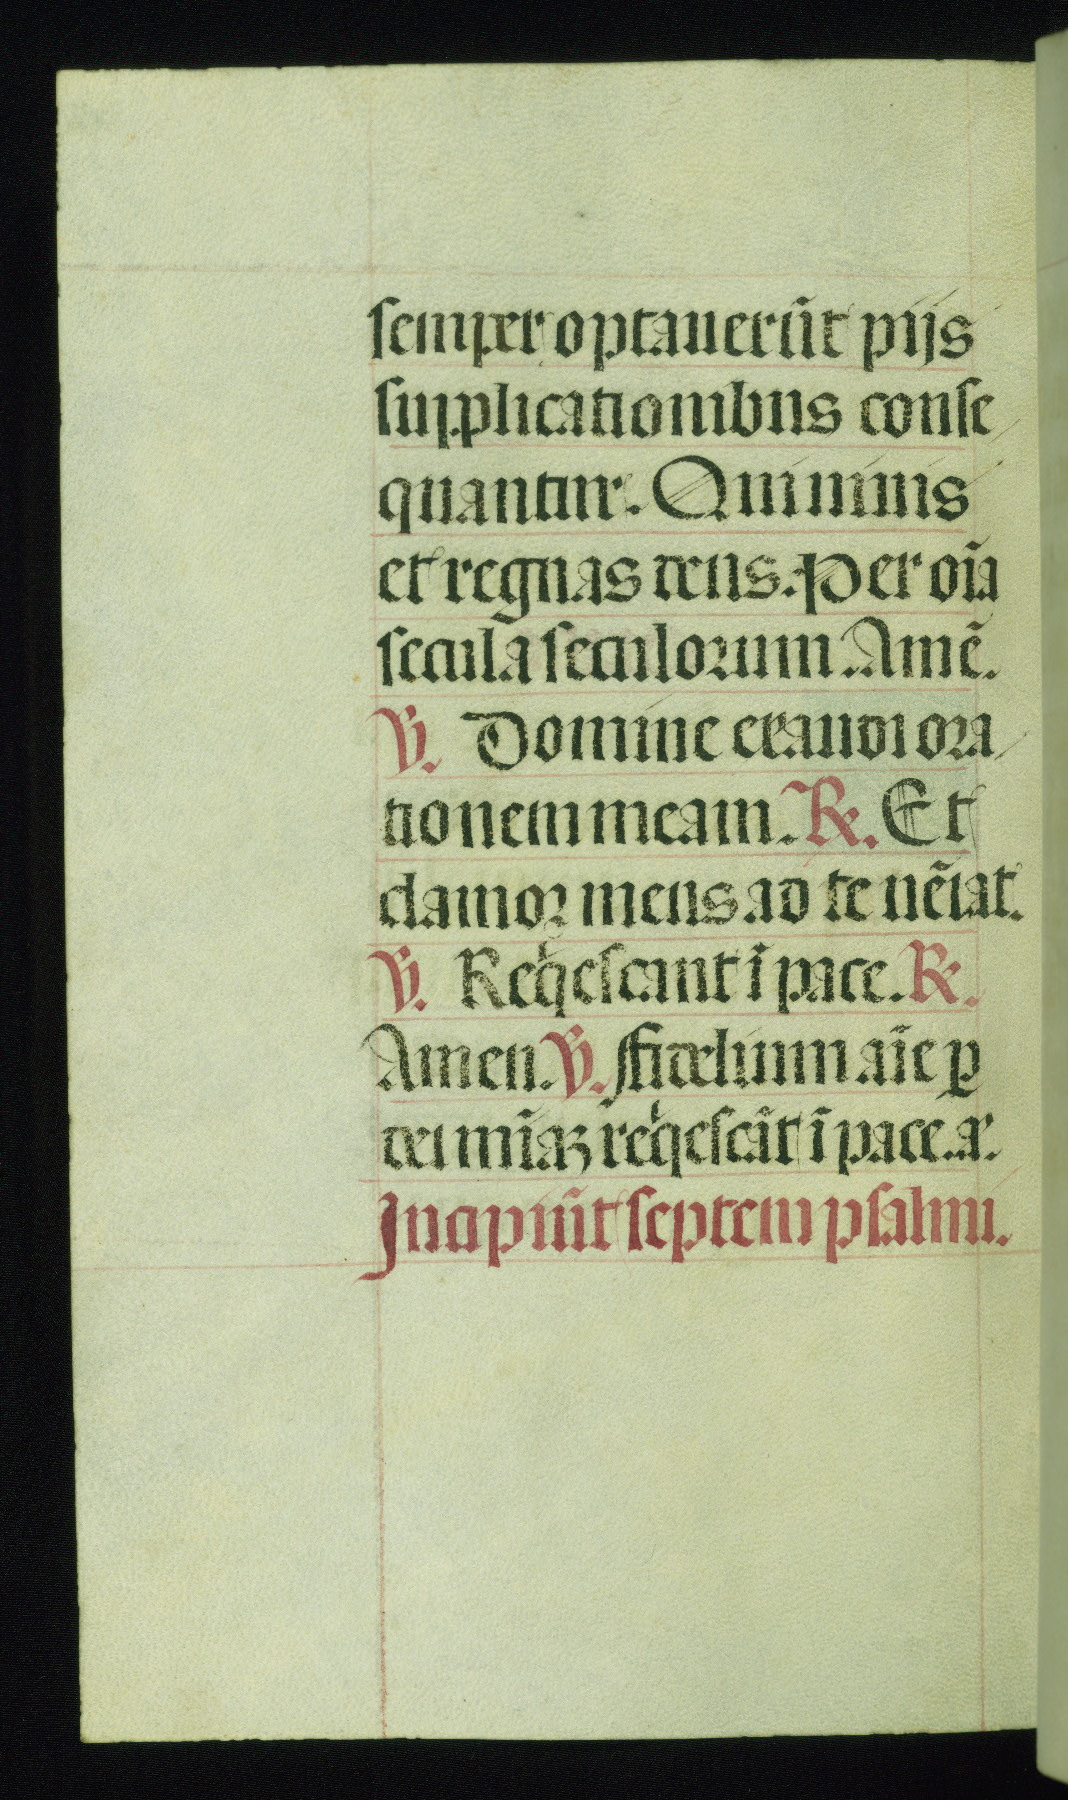 semper optauerūt pijs
supplicationibus conse
quantur. Qui uiuis
et regnas deus. Per oīa
secula seculorum. Amē.
V. Domine exaudi ora
tionem meam. R. Et
clamor meus ad te uēiat.
V. Reqͥescant ī pace. R.
Amen. V. ffidelium aīe ꝑ
dei mīaꝫ reqͥescāt ī pace. aͬ.
Incipiūt septem psalmi.